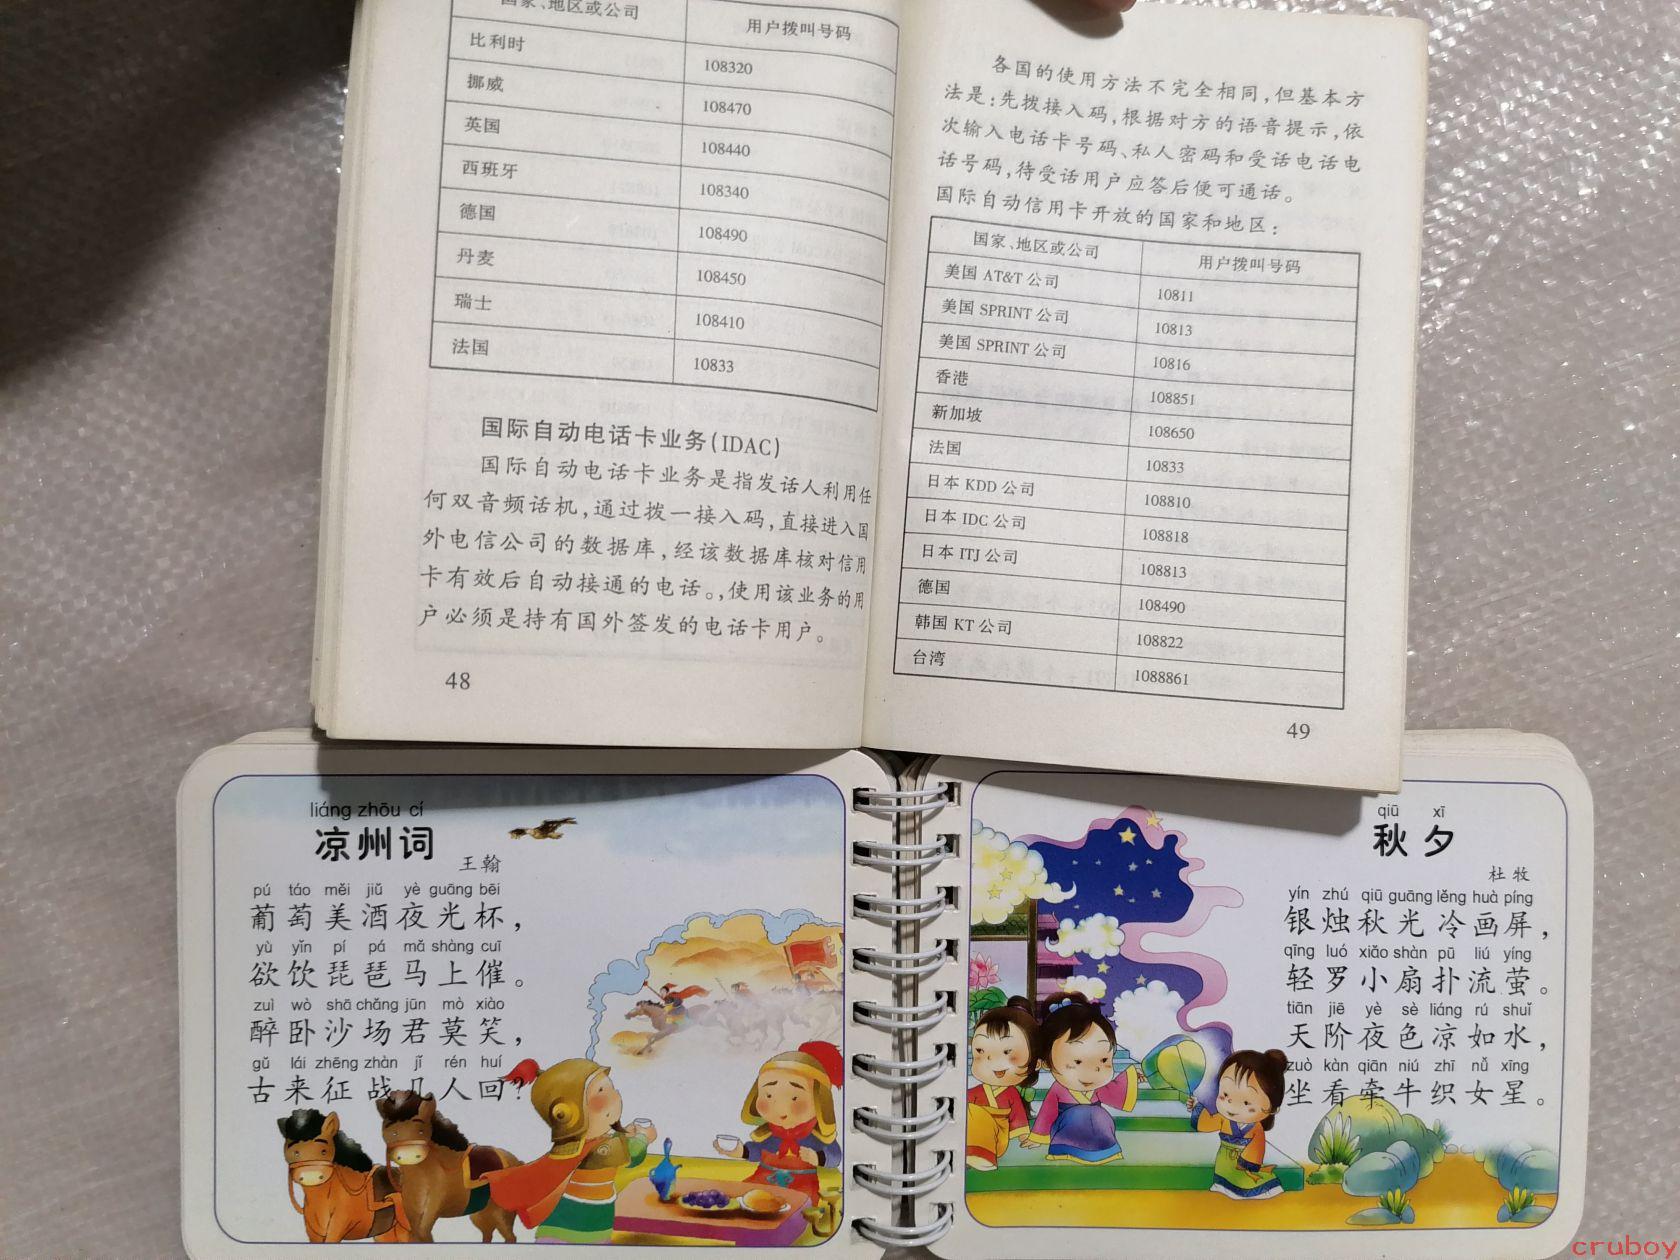 国家、地区或公司 用户拨叫号码
比利时 108320
挪威 108470
英国 108440
西班牙 108340
德国 108490
丹麦 108450
瑞士 108410
法国 10833
国际自动电话卡业务(IDAC)
国际自动电话卡业务是指发话人利用任
何双音频话机,通过拨一接入码,直接进入国
外电信公司的数据库,经该数据库核对信用
卡有效后自动接通的电话。,使用该业务的用
户必须是持有国外签发的电话卡用户。
48
各国的使用方法不完全相同,但基本方
法是:先拨接入码,根据对方的语音提示,依
次输入电话卡号码、私人密码和受话电话电
话号码,待受话用户应答后便可通话。
国际自动信用卡开放的国家和地区:
国家、地区或公司 用户拨叫号码
美国 AT&T 公司 10811
美国 SPRINT 公司 10813
美国 SPRINT 公司 10816
香港 108851
新加坡 108650
法国 10833
日本 KDD 公司 108810
日本 IDC 公司 108818
日本 ITJ 公司 108813
德国 108490
韩国 KT 公司 108822
台湾 1088861
49
liáng zhōu cí
凉州词
王翰
pú táo měi jiǔ yè guāng bēi
葡萄美酒夜光杯,
yù yǐn pí pá mǎ shàng cuī
欲饮琵琶马上催。
zuì wò shā chǎng jūn mò xiào
醉卧沙场君莫笑,
gǔ lái zhēng zhàn jǐ rén huí
古来征战几人回?
qiū xī
秋夕
杜牧
yín zhú qiū guāng lěng huà píng
银烛秋光冷画屏,
qīng luó xiǎo shàn pū liú yíng
轻罗小扇扑流萤。
tiān jiē yè sè liáng rú shuǐ
天阶夜色凉如水,
zuò kàn qiān niú zhī nǚ xīng
坐看牵牛织女星。
cruboy